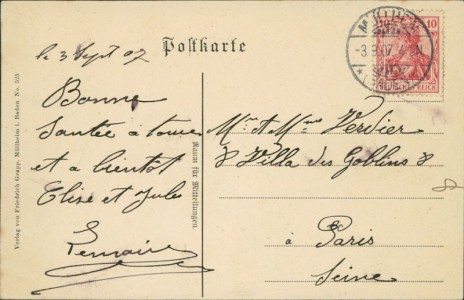 le 3 Sept 07
Postkarte
Bonne
Santée à toures
et a bientôt
Elise et Jules
Lemaire
Mr et Mme Verdier
8 Villa des Gobelins 8
à Paris
Seine
Raum für Mitteilungen.
Verlag von Friedrich Grupp, Müllheim i. Baden No. 525
10
DEUTSCHES REICH
-3.9.07.